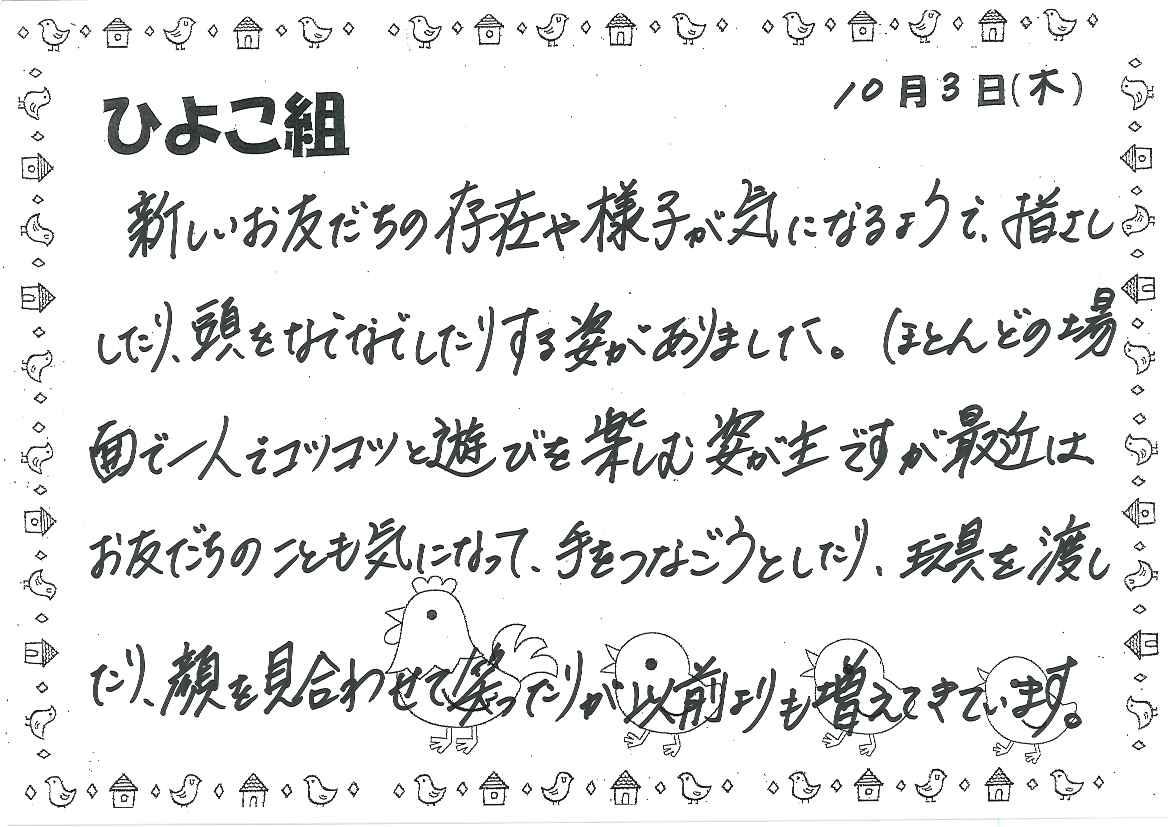 10月3日(木)
ひよこ組
新しいお友だちの存在や様子が気になるようで、指さし
したり、頭をなでなでしたりする姿がありました。ほとんどの場
面で一人でコツコツと遊びを楽しむ姿が主ですが最近は
お友だちのことも気になって、手をつなごうとしたり、玩具を渡し
たり、顔を見合わせて笑ったりが以前よりも増えてきています。